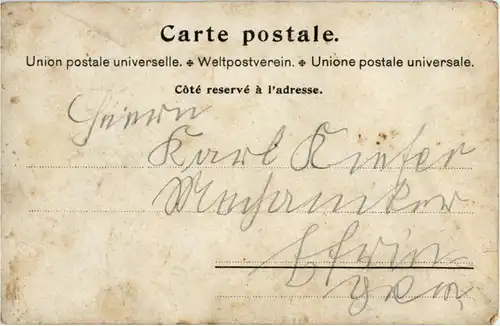 Carte postale.
Union postale universelle. ✤ Weltpostverein. ✤ Unione postale universale.
Côté reservé à l'adresse.
Herrn
Karl Kiefer
Mechaniker
Efrin-
gen